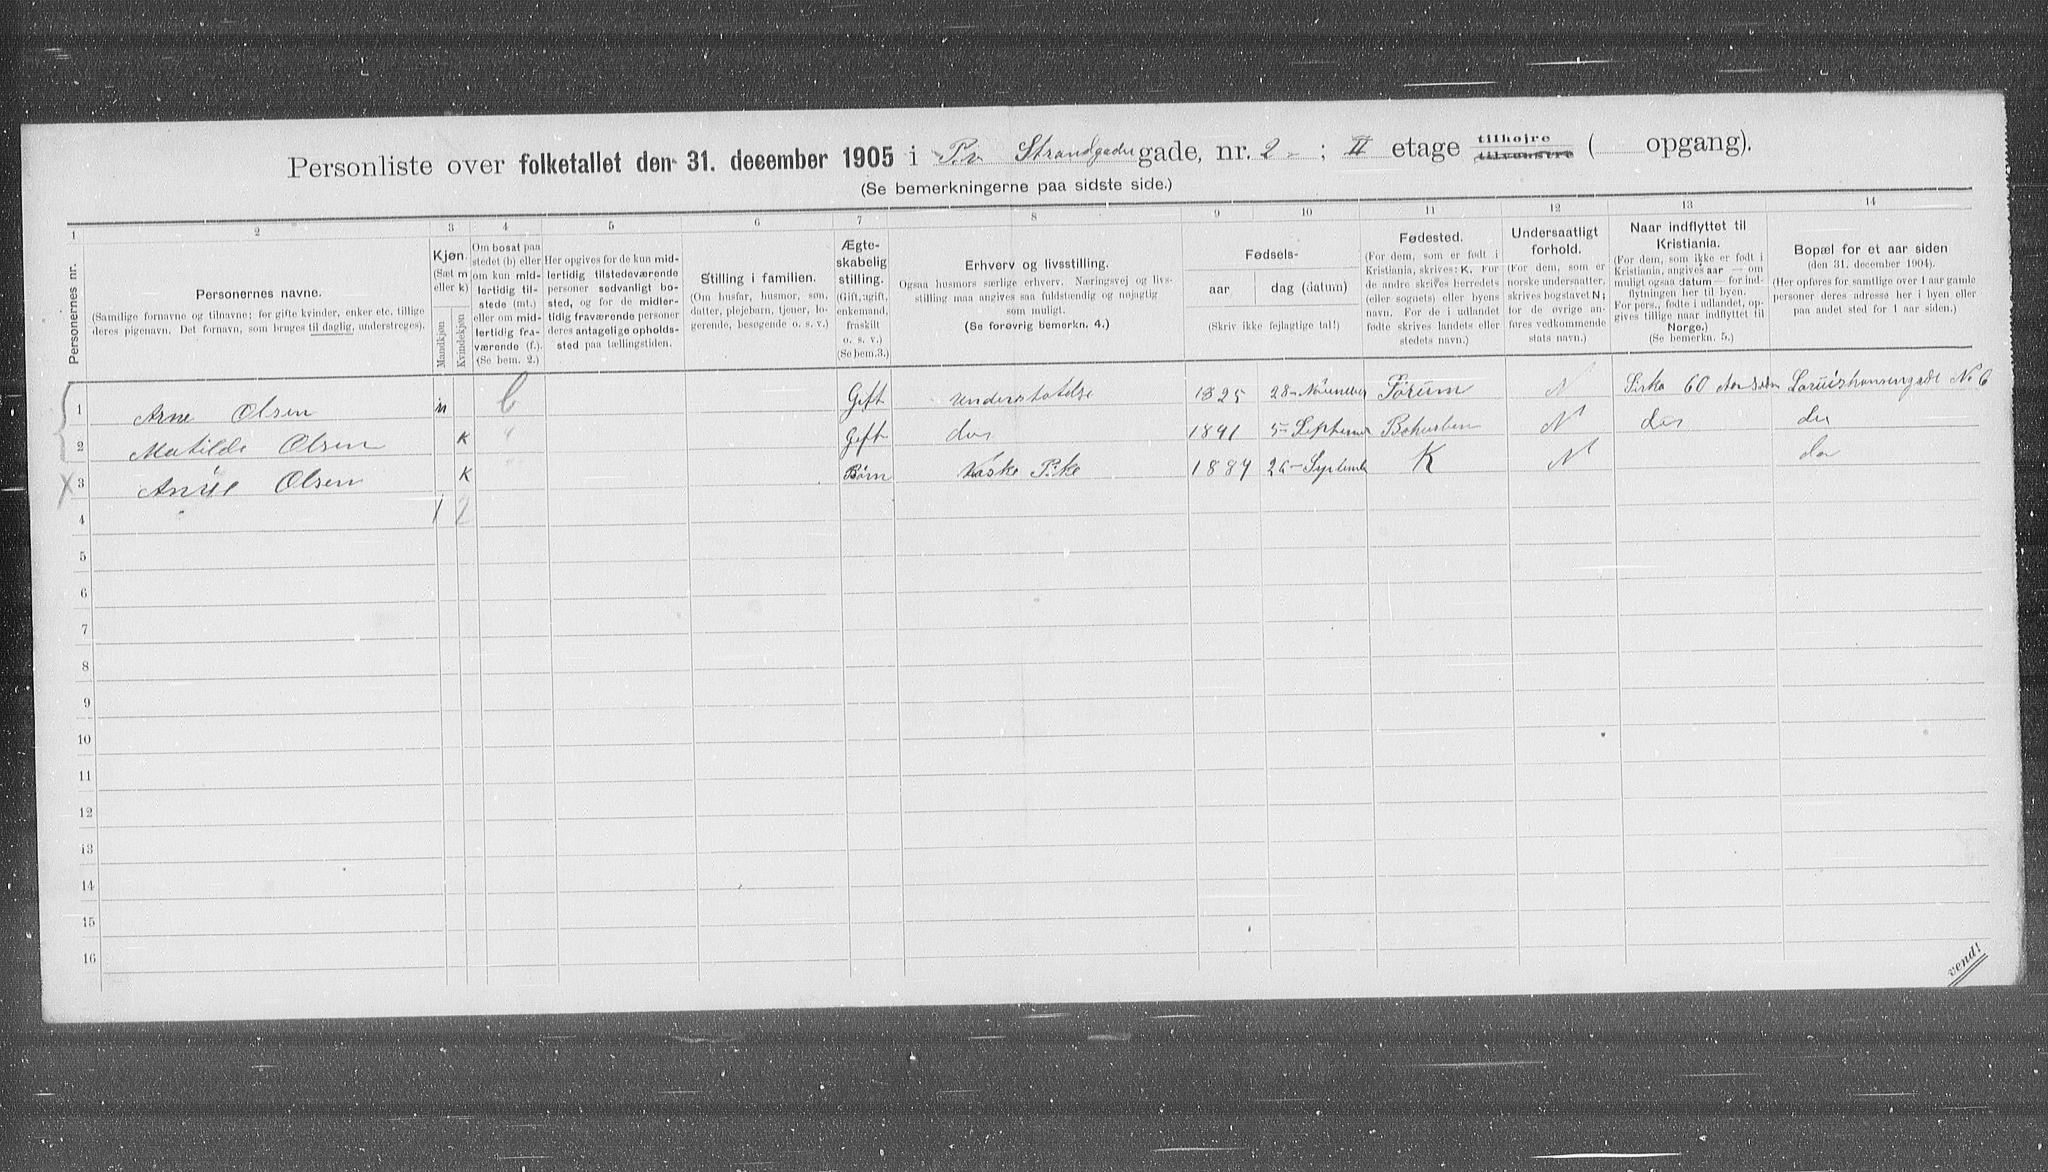 Personliste over folketallet den 31. december 1905 i P.v Strandgaden gade, nr. 2 ; II etage tilhøjre tilvenstre ( opgang).
(Se bemerkningerne paa sidste side.)
1 2 3 4 5 6 7 8 9 10 11 12 13 14
Personernes nr.
Personernes navne.
(Samtlige fornavne og tilnavne; for gifte kvinder, enker etc. tillige
deres pigenavn. Det fornavn, som bruges til daglig, understreges).
Kjøn.
(Sæt m
eller k)
Mandkjøn
Kvindekjøn
Om bosat paa
stedet (b) eller
om kun midlertidig
tilstede (mt.)
eller om midlertidig
fraværende (f.).
(Se bem. 2.)
Her opgives for de kun midlertidig
tilstedeværende
personer sedvanligt bosted,
og for de midlertidig
fraværende personer
deres antagelige opholdssted
paa tællingstiden.
Stilling i familien.
(Om husfar, husmor, søn,
datter, plejebarn, tjener, logerende,
besøgende o. s. v.)
Ægteskabelig
stilling.
(Gift, ugift,
enkemand,
fraskilt
o. s. v.)
(Se bem.3.)
Erhverv og livsstilling.
Ogsaa husmors særlige erhverv. Næringsvej og livsstilling
maa angives saa fuldstændig og nøjagtig
som muligt.
(Se forøvrig bemerkn. 4.)
Fødsels-
aar dag (datum)
(Skriv ikke fejlagtige tal!)
Fødested.
(For dem, som er født i
Kristiania, skrives: K. For
de andre skrives herredets
(eller sognets) eller byens
navn. For de i udlandet
fødte skrives landets eller
stedets navn.)
Undersaatligt
forhold.
(For dem, som er
norske undersaatter,
skrives bogstavet N;
for de øvrige anføres
vedkommende
stats navn.)
Naar indflyttet til
Kristiania.
(For dem, som ikke er født i
Kristiania, angives aar — om
muligt ogsaa datum — for indflytningen
her til byen.
For pers., fødte i udlandet, opgives
tillige naar indflyttet til
Norge.)
(Se bemerkn. 5.)
Bopæl for et aar siden
(den 31. december 1904).
(Her opføres for samtlige over 1 aar gamle
personer deres adresse her i byen eller
paa andet sted for 1 aar siden.)
1 Arne Olsen m b Gift understøttelse 1825 28- November N Sirka 60 Aar siden No 6
2 Matilde Olsen K " Gift do 5- September Bohuslen N do do
3 Olsen K " Børn Vaske Pike 26- September K N do
4 1 2
5
6
7
8
9
10
11
12
13
14
15
16
vend!